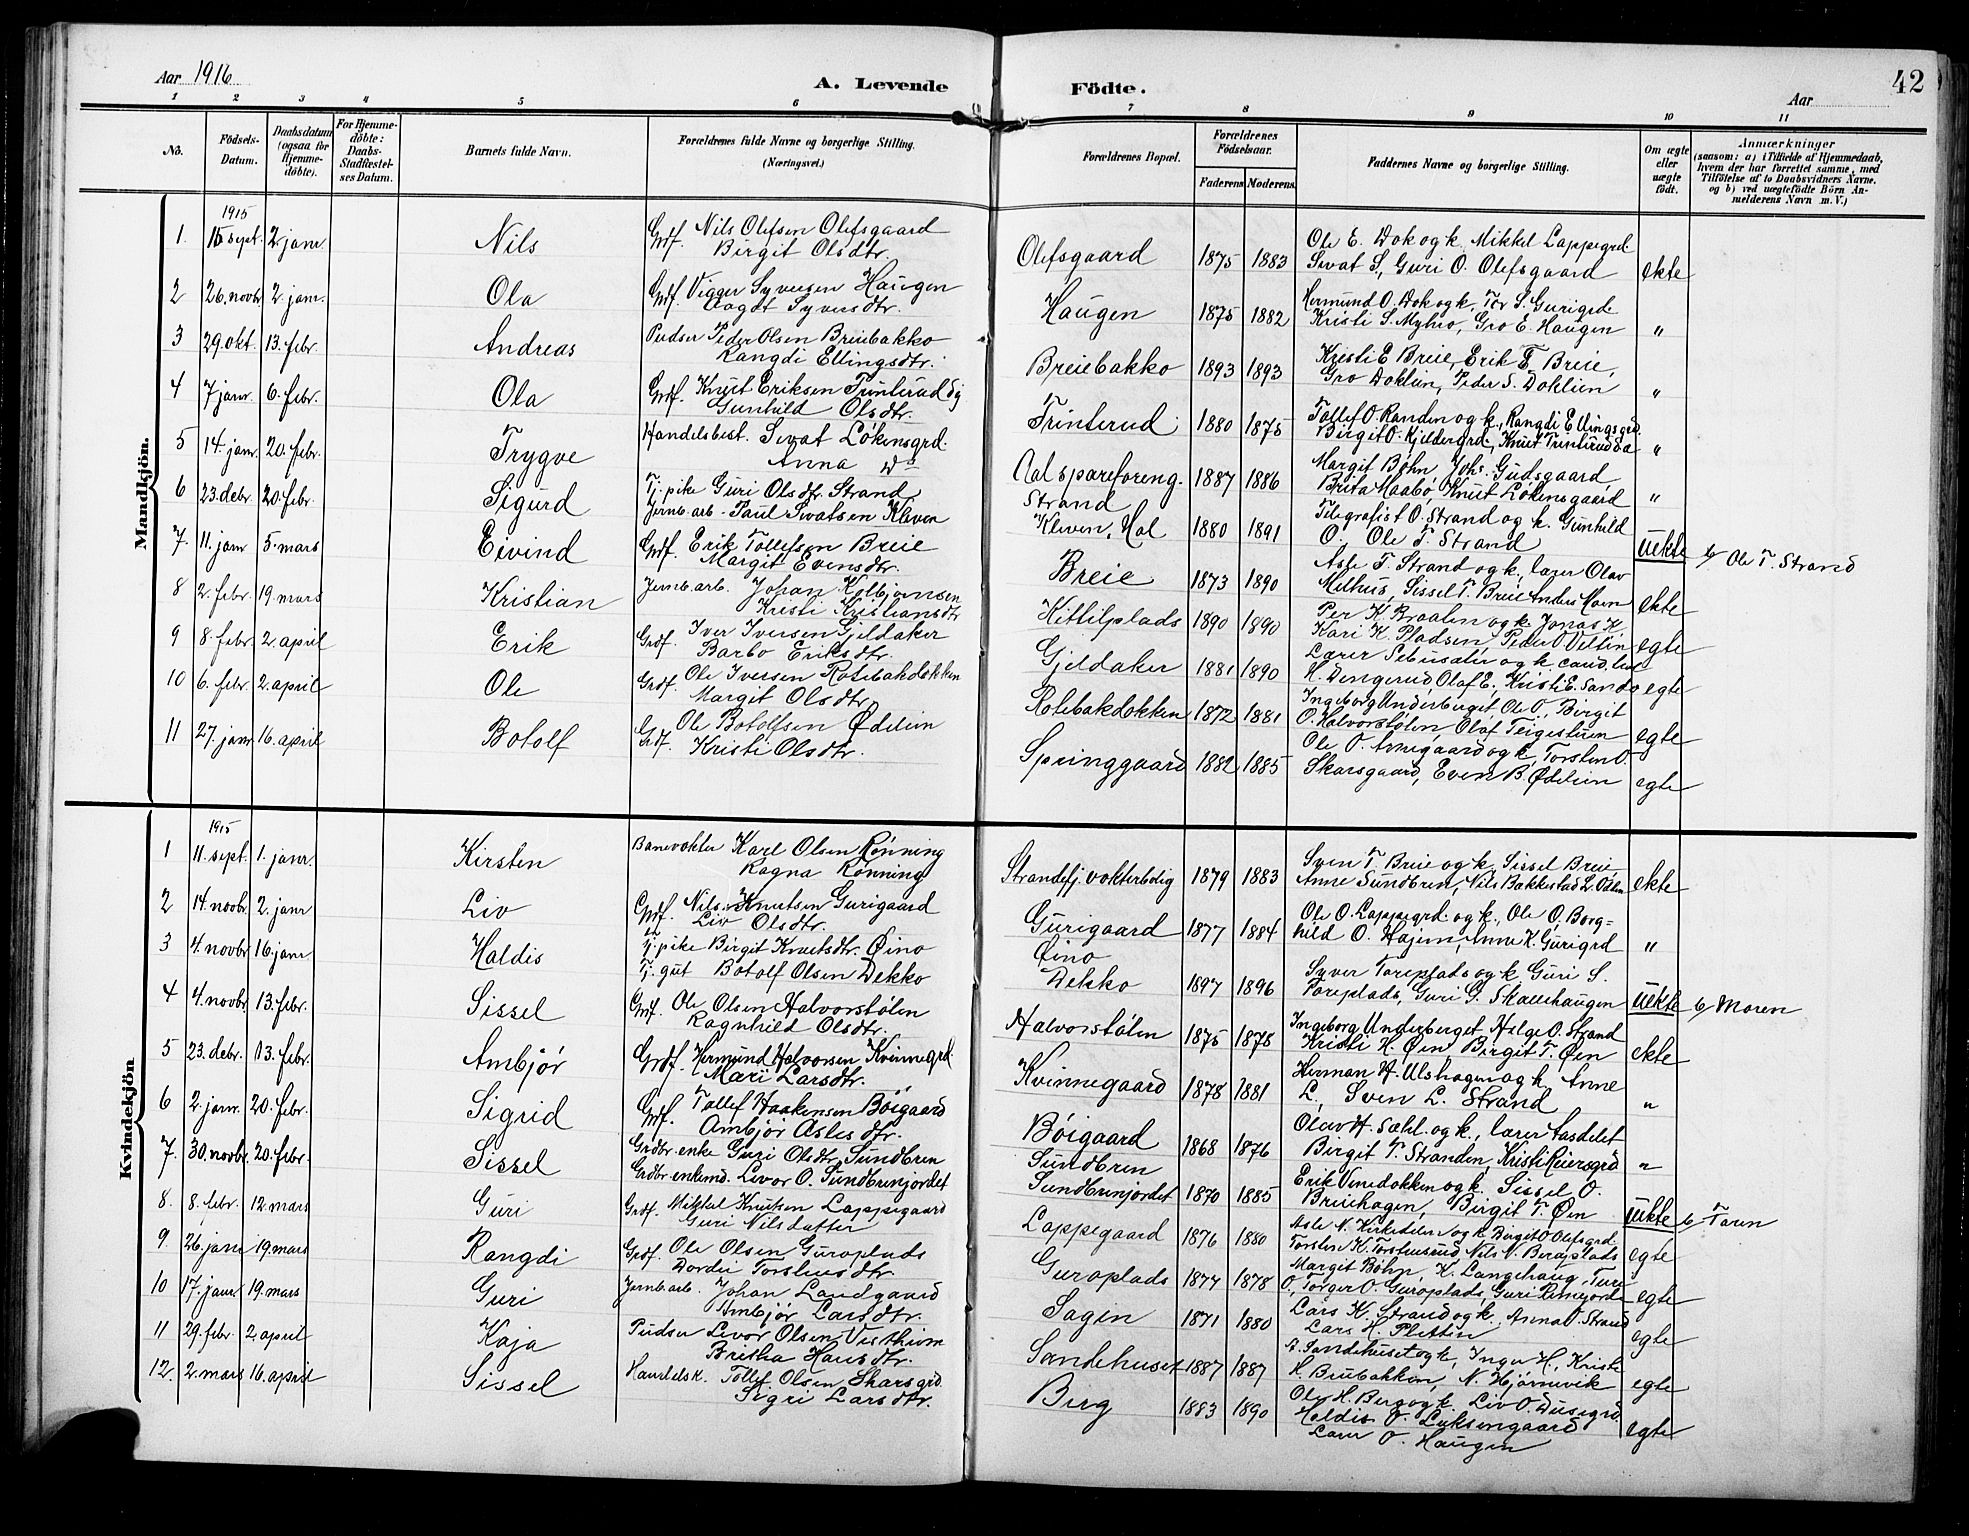 Aar 1916
A. Levende Födte.
Aar
42
1 2 3 4 5 6 7 8 9 10 11
No.
Födsels-Datum.
Daabsdatum (ogsaa for Hjemme-döbte).
For Hjemme-döbte: Daabs-Stadfæstel-ses Datum.
Barnets fulde Navn.
Forældrenes fulde Navne og borgerlige Stilling. (Næringsvei.)
Forældrenes Bopæl.
Forældrenes Födselsaar.
Faderens Moderens
Faddernes Navne og borgerlige Stilling.
Om ægte eller uægte födt.
Anmærkninger (saasom: a) i Tilfælde af Hjemmedaab, hvem der har forrettet samme, med Tilföielse af to Daabsvidners Navne. og b) ved uægtefödte Börn An-melderens Navn m. V.)
Mandkjön.
1915
1. 15 sept. 2 janr. Nils Grdf. Nils Olefsen Olefsgaard
Birgit Olsdtr. Olefsgaard 1875 1883 Ole E. Dokogk, Mikkel Lappegrd.
Sevat S, Guri O. Olefsgaard ekte
2 26. novbr 2. janr. Ola Grdf. Vigger Syversen Haugen
Aagot Syversdtr. Haugen 1875 1882 Hermund O. Dokogk, Tor S. Gurigrd
Kristi S. Myhro, Gro E. Haugen "
3 29. okt. 13. febr. Andreas Pudser Peder Olsen Breiebakko
Rangdi Ellingsdtr. Breiebakko 1893 1893 Kristi E Breie, Erik T. Breie,
Gro Doklien, Peder S. Doklien "
4 7 janr. 6. febr. Ola Grdf. Knut Eriksen Trinterud
Gunhild Olsdtr. Trinterud 1880 1875 Tollef O. Randen og k., Rangdi Ellingsgrd.
Birgit O. Kjeldergrd, Knut Trinterud "
5 14. janr. 20. febr. Trygve Handelsbest. Sevat Løkensgrd.
Anna Do Aal spareforeng. 1887 1886 Margit Bøhn, Johs. Gudsgaard,
Brita Maabø, Knut Løkensgaard "
6 23. debr. 20. febr. Sigurd Tj. pike Guri Olsdtr. Strand
Jernb. arb. Paul Sevatsen Kleven Strand
Kleven, Hol 1880 1891 Telegrafist O. Strand og k. Gunhild
O., Ole T. Strand Uekte b/ Ole T. Strand
7. 11. janr 5. mars Eivind Grdf. Erik Tollefsen Breie
Margit Evensdtr. Breie 1873 1890 Asle T. Strand og k., lærer Olav
Melhus, Sissel T. Breie Anders Moen ekte
8 2. febr. 19. mars Kristian Jernb. arb. Johan Kolbjørnsen
Kristi Kristiansdtr Kittilplads 1890 1890 Per K. Braaten og k. Jonas K
Kari K. Pladsen, Peder O Veltin egte
9 8. febr 2. april Erik Grdf. Iver Iversen Gjeldaker
Barbo Eriksdtr. Gjeldaker 1881 1890
H. Dengerud, Olaf E., Kristi E. Sando egte
10 6. febr. 2. april Ole Grdf. Ole Iversen Rotebakdokken
Margit Olsdtr. Rotebakdokken 1872 1881 Ingeborg Underberget Ole O., Birgit
O. Halvorstølen, Olaf Teigestuen egte
11 27. janr 16. april Botolf Grdf. Ole Botolfsen Ødelien
Kristi Olsdtr. Springgaard 1882 1885 Ole O. Annegaard og k, Torsten O.
Skarsgaard, Even B. Ødelien egte
Kvindekjön
1915
1 11. sept. 1. janr. Kirsten Banevokter Karl Olsen Rønning
Ragna Rønning Strandefj. vokterbolig 1879 1883 Sven T. Breie og k, Sissel Breie,
Anne Sundbren, Nils Bakkestad ekte
2 14. novbr. 2. janr Liv Grdf. Nils Knutsen Gurigaard
Liv Olsdtr. Gurigaard 1877 1884 Ole O. Lappegrd. og k., Ole O. Borg=
hild O. Hajem, Anne K. Gurigrd "
3 4. novbr 16. janr Haldis Tj. pike Birgit Knutsdtr. Øino
Tj. gut Botolf Olsen Dekko Øino
Dekko 1897 1896 Syver Toreplads og k Guri S.
Toreplads, Guri G. Skallehaugen Uekte b/ Moren
4 4. novbr. 13. febr. Sissel Grdf. Ole Olsen Halvorstølen
Ragnhild Olsdtr. Halvorstølen 1875 1878 Ingeborg Underberget, Helge O. Strand
Kristi H. Øen Birgit T. Øen ekte
5 23. debr. 13. febr. Ambjør Grdf. Hermund Halvorsen Kvinnegrd.
Mari Larsdtr. Kvinnegaard 1878 1881 Herman H. Ulshagen og k, Anne
L., Sven L. Strand "
6 2. janr. 20. febr. Sigrid Grdf. Tollef Haakensen Bøigaard
Ambjør Aslesdtr. Bøigaard 1868 1876 Olav H. Sæhl. og k., lærer Aasdelet
Birgit T. Stranden, Kristi Reiersgrd "
7. 30. novbr. 20. febr. Sissel Grdbr. enke Guri Olsdtr. Sundbren
Grdbr. enkemd. Levor O. Sundbrenjordet Sundbren
Sundbrenjordet 1870 1885 Erik Venedokken og k. Sissel O.
Breiehagen, Birgit T. Øen Uekte b/ Faren
8. 8. febr. 12. mars Guri Grdf. Mikkel Knutsen Lappegaard
Guri Nilsdatter Lappegaard 1876 1880 Asle N. Kirkedelen og k Birgit O Olefsgrd
Torsten K. Torsteinsrud Nils N. Beraplads egte
9 26. janr 19. mars Rangdi Grdf. Ole Olsen Guroplads
Dordei Torsteinsdtr. Guroplads 1874 1878 Margit Bøhn, K. Langehaug, Ture
O., Torger O. Guroplads, Guri Rimejorde egte
10 17. janr 19. mars Guri Jernb. arb. Johan Landgaard
Ambjør Larsdtr. Sagen 1871 1880 Lars K. Strand og k., Anna O. Strand
Lars H. Pletten egte
11 29. febr. 2. april Kaja Pudser Levor Olsen Vestheim
Bretha Hansdtr. Sandehuset 1887 1887 Sandehuset og k, Inger H, Kristi
H. Beubakken, N. Hjørnevik egte
12. 2. mars 16. april Sissel Handelsk. Tollef Olsen Skarsgrd.
Sigri Larsdtr. Berg 1883 1890 Ole H. Berg og k. Liv O. Dusegrd.
Haldis O. Løksengaard
Lærer O. Haugen egte